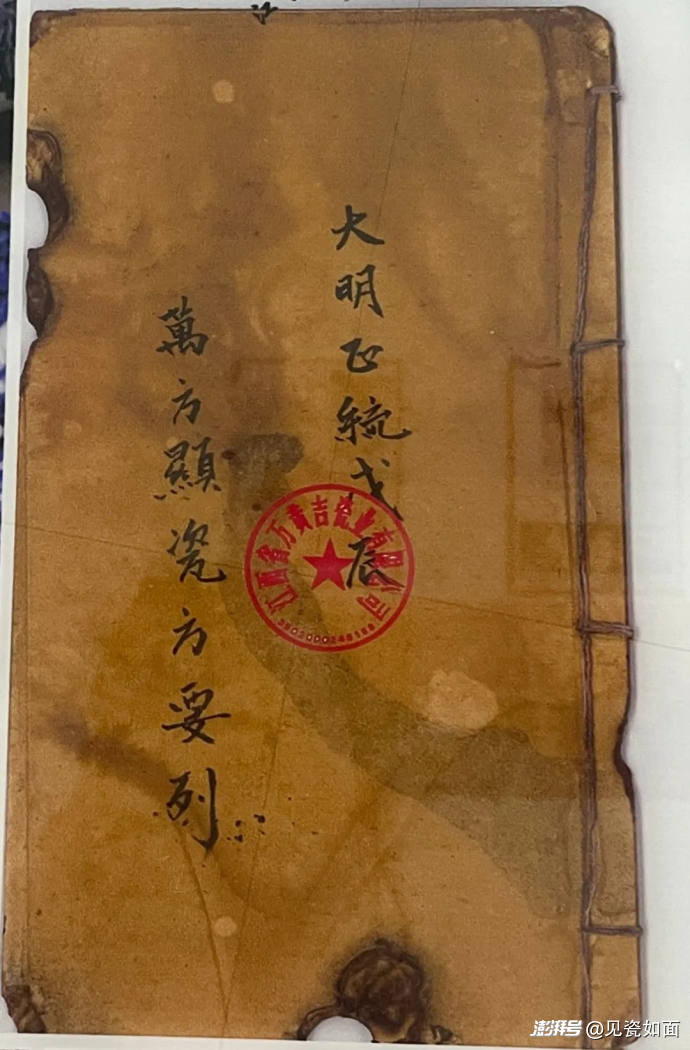 大明正統戊辰
萬方顯瓷方要列
江西省万黄吉瓷业有限公司
澎湃号@见瓷如面